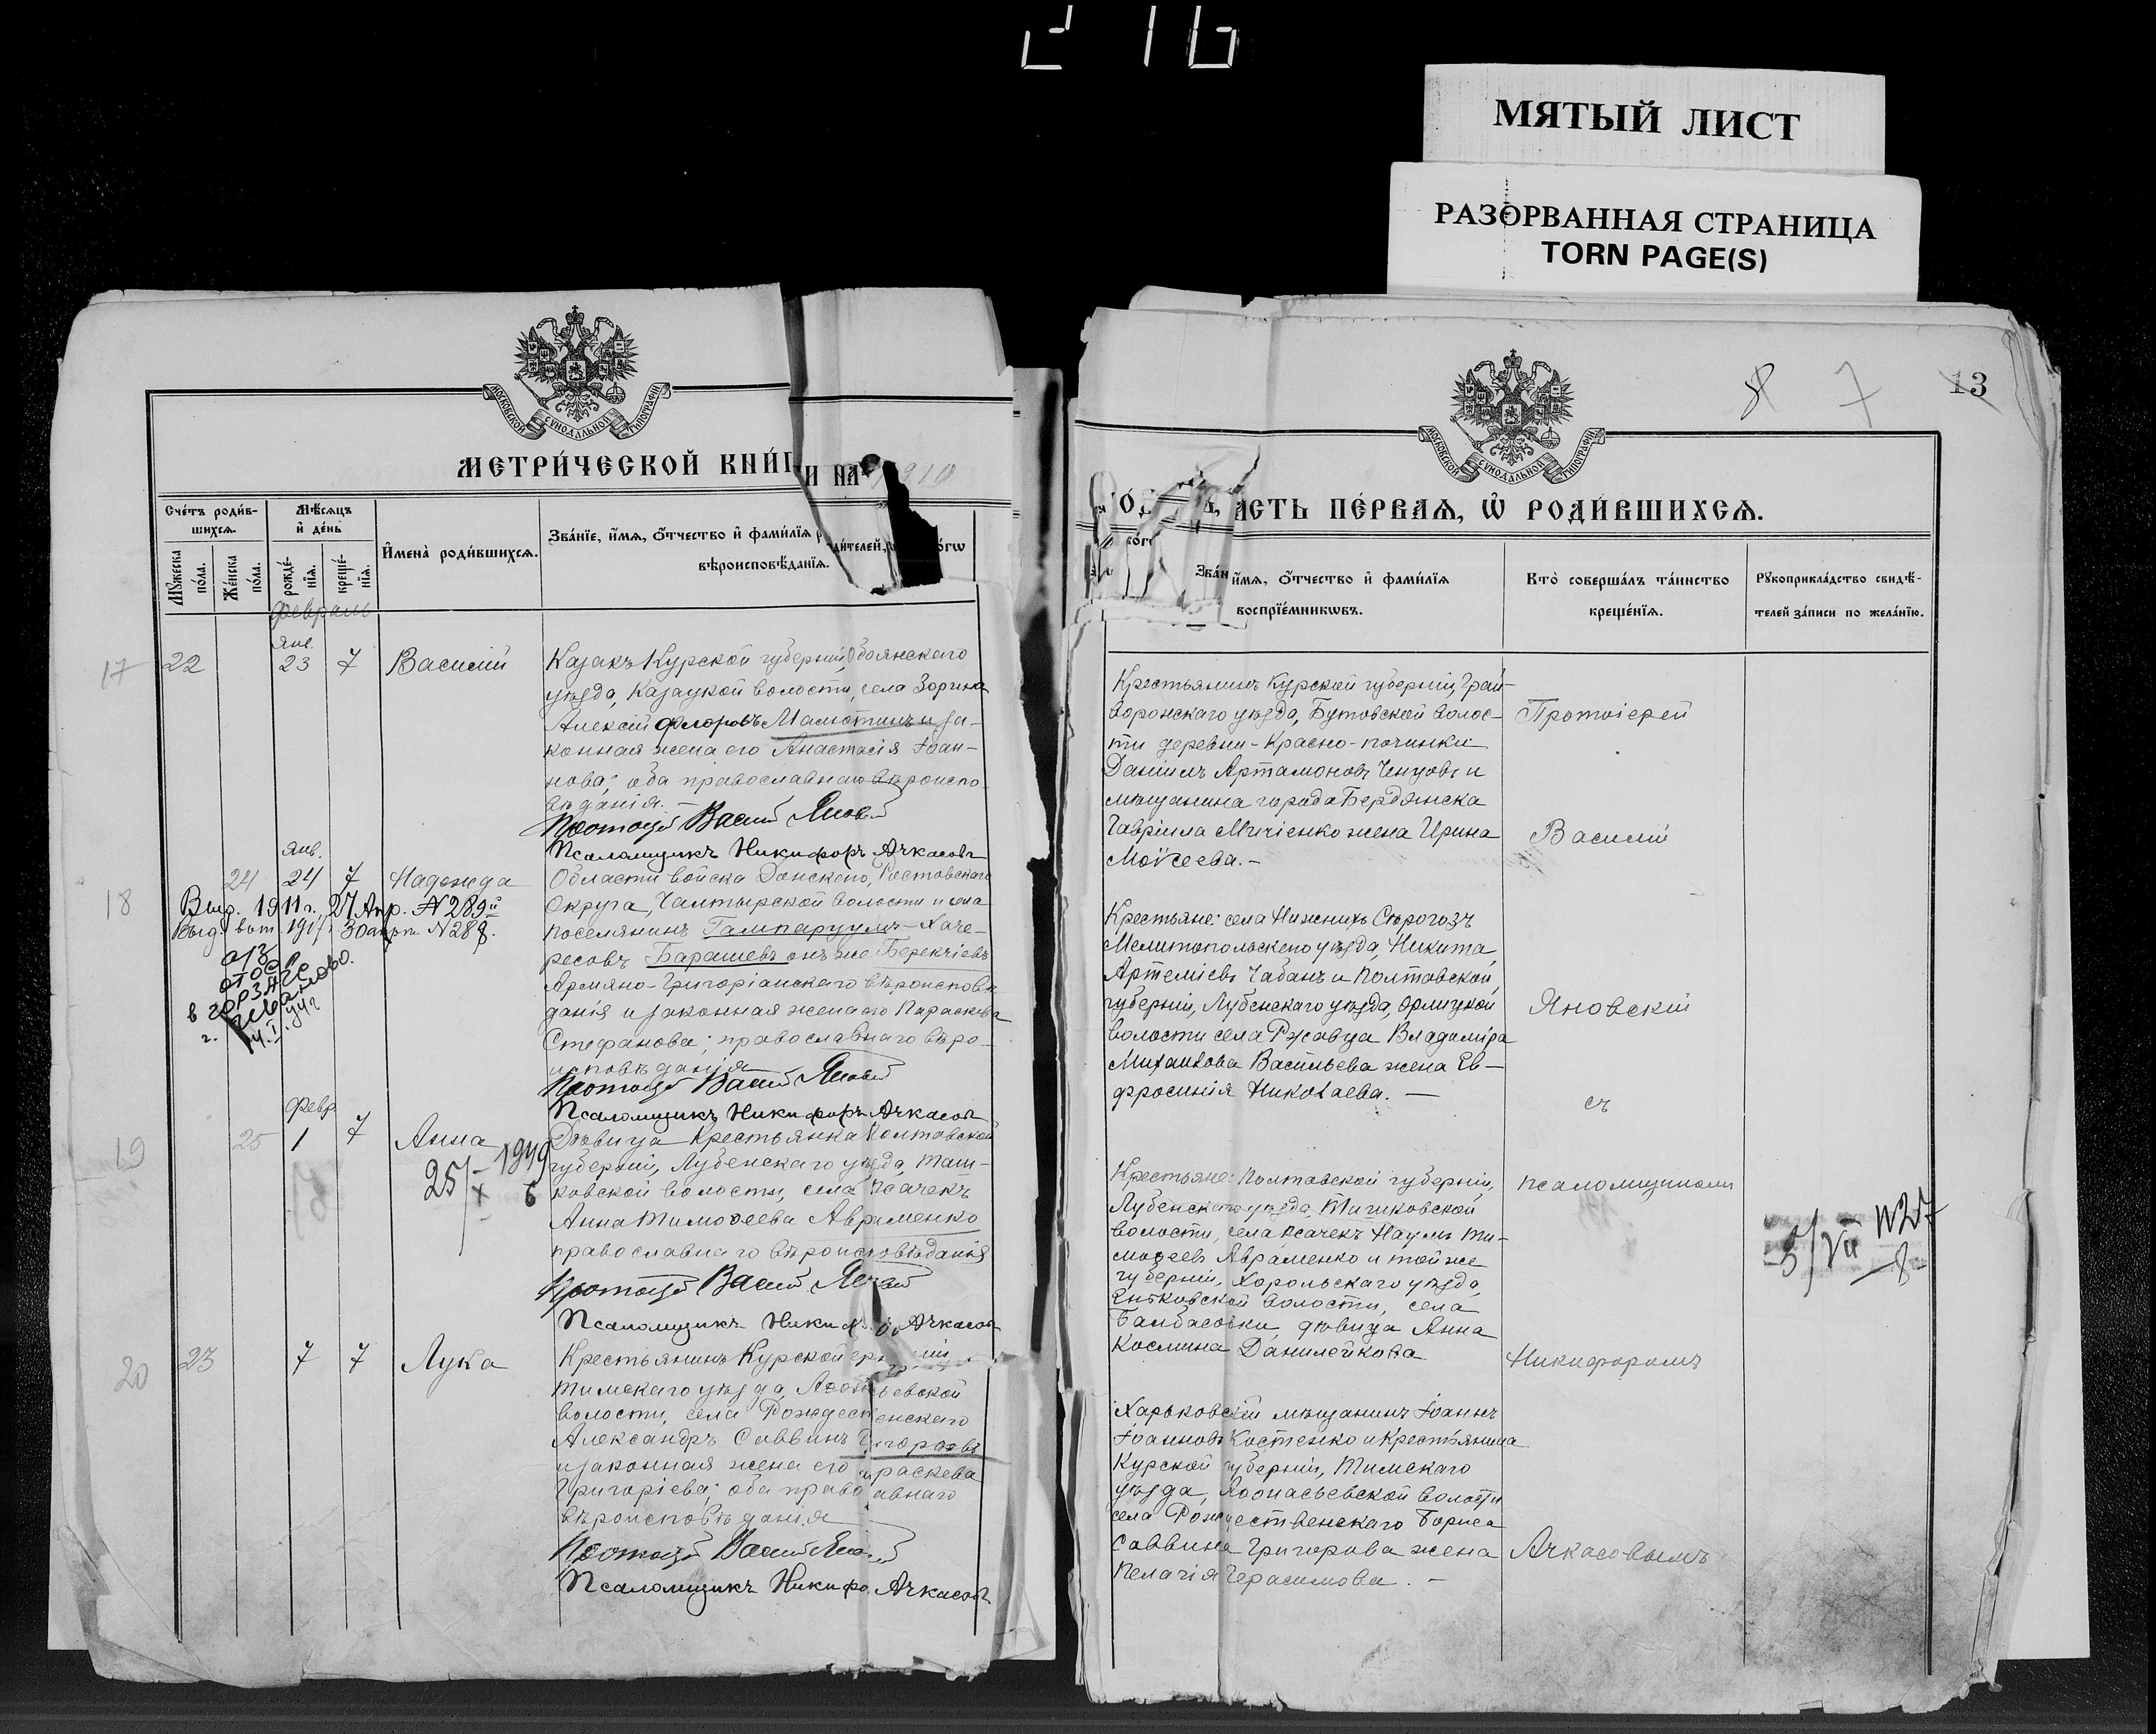 216
МЯТЫЙ ЛИСТ
РАЗОРВАННАЯ СТРАНИЦА
TORN PAGE(S)
МОСКОВСКОЙ СѴНОДАЛЬНОЙ ТИПОГРАФІИ
МЕТРИ́ЧЕСКОЙ КНИ́ГИ НА 1910
Сче́тъ роди́в-
шихсѧ.
Мѣ́сѧцъ
и҆ де́нь
Мꙋ́жеска
по́ла.
Же́нска
по́ла.
рожде́-
нїѧ.
креще́-
нїѧ.
И҆мена̀ роди́вшихсѧ.
Зва́нїе, и҆́мѧ, ѻ҆́тчество и҆ фами́лїѧ роди́телей,
вѣроисповѣ́данїѧ.
февраль
17
22
Янв.
23
7
Василий
Казакъ Курской губерніи, Обоянскаго
уѣзда, Казацкой волости, села Зорина
Алексій Ѳеодоровъ Мамотинъ и за-
конная жена его Анастасія Іоан-
нова; оба православнаго вѣроиспо-
вѣданія.
Протоіерей Василій Яновскій
Псаломщикъ Никифоръ Ачкасовъ
18
24
Янв.
24
7
Надежда
Выд. 1911 г. 27 Апр. № 289й
Области войска Донскаго, Ростовскаго
Округа, Чалтырской волости и села
поселянинъ Гампарцумъ Хаче-
ресовъ Барашевъ онъ же Берекчіевъ
Армяно-Григоріанскаго вѣроиспове
данія и законная жена его Параскева
Стефанова; православнаго вѣро-
исповѣданія
Протоіерей Василій Яновскій
Псаломщикъ Никифоръ Ачкасовъ
19
25
февр
1
7
Анна
25/X 1949
Дѣвица Крестьянка Полтавской
губерніи, Лубенскаго уѣзда, Таш-
ковской волости, села Исачекъ
Анна Тимоѳеева Авраменко
православнаго вѣроисповѣданія
Протоіерей Василій Яновскій
Псаломщикъ Ники Ачкасовъ
20
23
7
7
Лука
Крестьянинъ Курской
Тимскаго уѣзда,
волости, села Рождественскаго
Александръ Саввинъ Григоровъ
и законная жена его Параскева
Григоріева; оба православнаго
вѣроисповѣданія
Протоіерей Василій Яновскій
Псаломщикъ Никифо. Ачкасовъ
8 7 13
МОСКОВСКОЙ СѴНОДАЛЬНОЙ ТИПОГРАФІИ
ЧАСТЬ ПЕ́РВАѦ, Ѡ҆ РОДИ́ВШИХСѦ.
Зва́н и҆́мѧ, ѻ҆́тчество и҆ фами́лїѧ
воспрїе́мникѡвъ.
Кто̀ соверша́лъ та́инство
креще́нїѧ.
Рꙋкоприкла́дство свидѣ́-
телей за́писи по жела́нїю.
Крестьянинъ Курской губерніи, Грай-
воронскаго уѣзда, Бутовской волос-
ти деревни-Красно-починки
Даніилъ Артамоновъ Ченцовъ и
мѣщанина города Бердянска
Гавріила Мичіенко жена Ирина
Моѵсеева.-
Крестьяне: села Нижнихъ Сѣрогозъ
Мелитопольскаго уѣзда, Никита
Артеміевъ Чабанъ и Полтавской
губерніи, Лубенскаго уѣзда, Орлицкой
волости села Ржавца Владиміра
Михаилова Васильева жена Ев-
фросинія Николаева. —
Крестьяне: Полтавской губерніи,
Лубенскаго уѣзда, Тишковской
волости, села Исачекъ Наумъ Ти-
моѳеевъ Авраменко и той же
губерніи, Хорольскаго уѣзда,
волости, села
дѣвица Анна
Космина Данилейкова
Харьковскій мѣщанинъ Іоаннъ
Іоанновъ Костенко и Крестьянина
Курской губерніи, Тимскаго
уѣзда, Аѳонасьевской волости
села Рождественскаго Бориса
Саввина Григорова жена
Пелагія Герасимова. -
Протоіерей
Василій
Яновскій
съ
псаломщикомъ
Никифоромъ
Ачкасовымъ